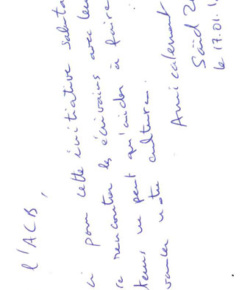 l'ACB,
ci pour cette initiative
rencontrer les écrivains avec
ne peut qu'aider à faire
notre culture.
Amicalement
Saïd
le 17.01.